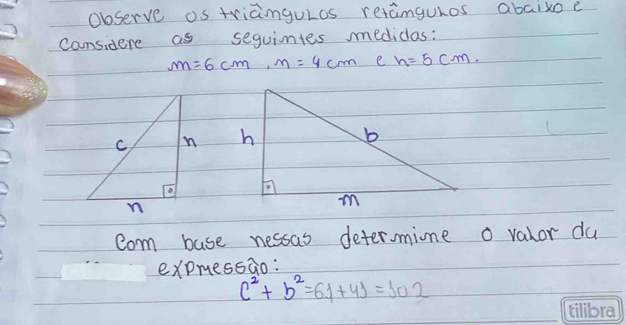 Observe os triângulos retângulos abaixo e
considere as seguintes medidas:
m=6cm, n=4cm e h=5cm.
c h h b
n m
Com base nessas determine o valor da
expressão:
c²+b²=61+41=102
tilibra